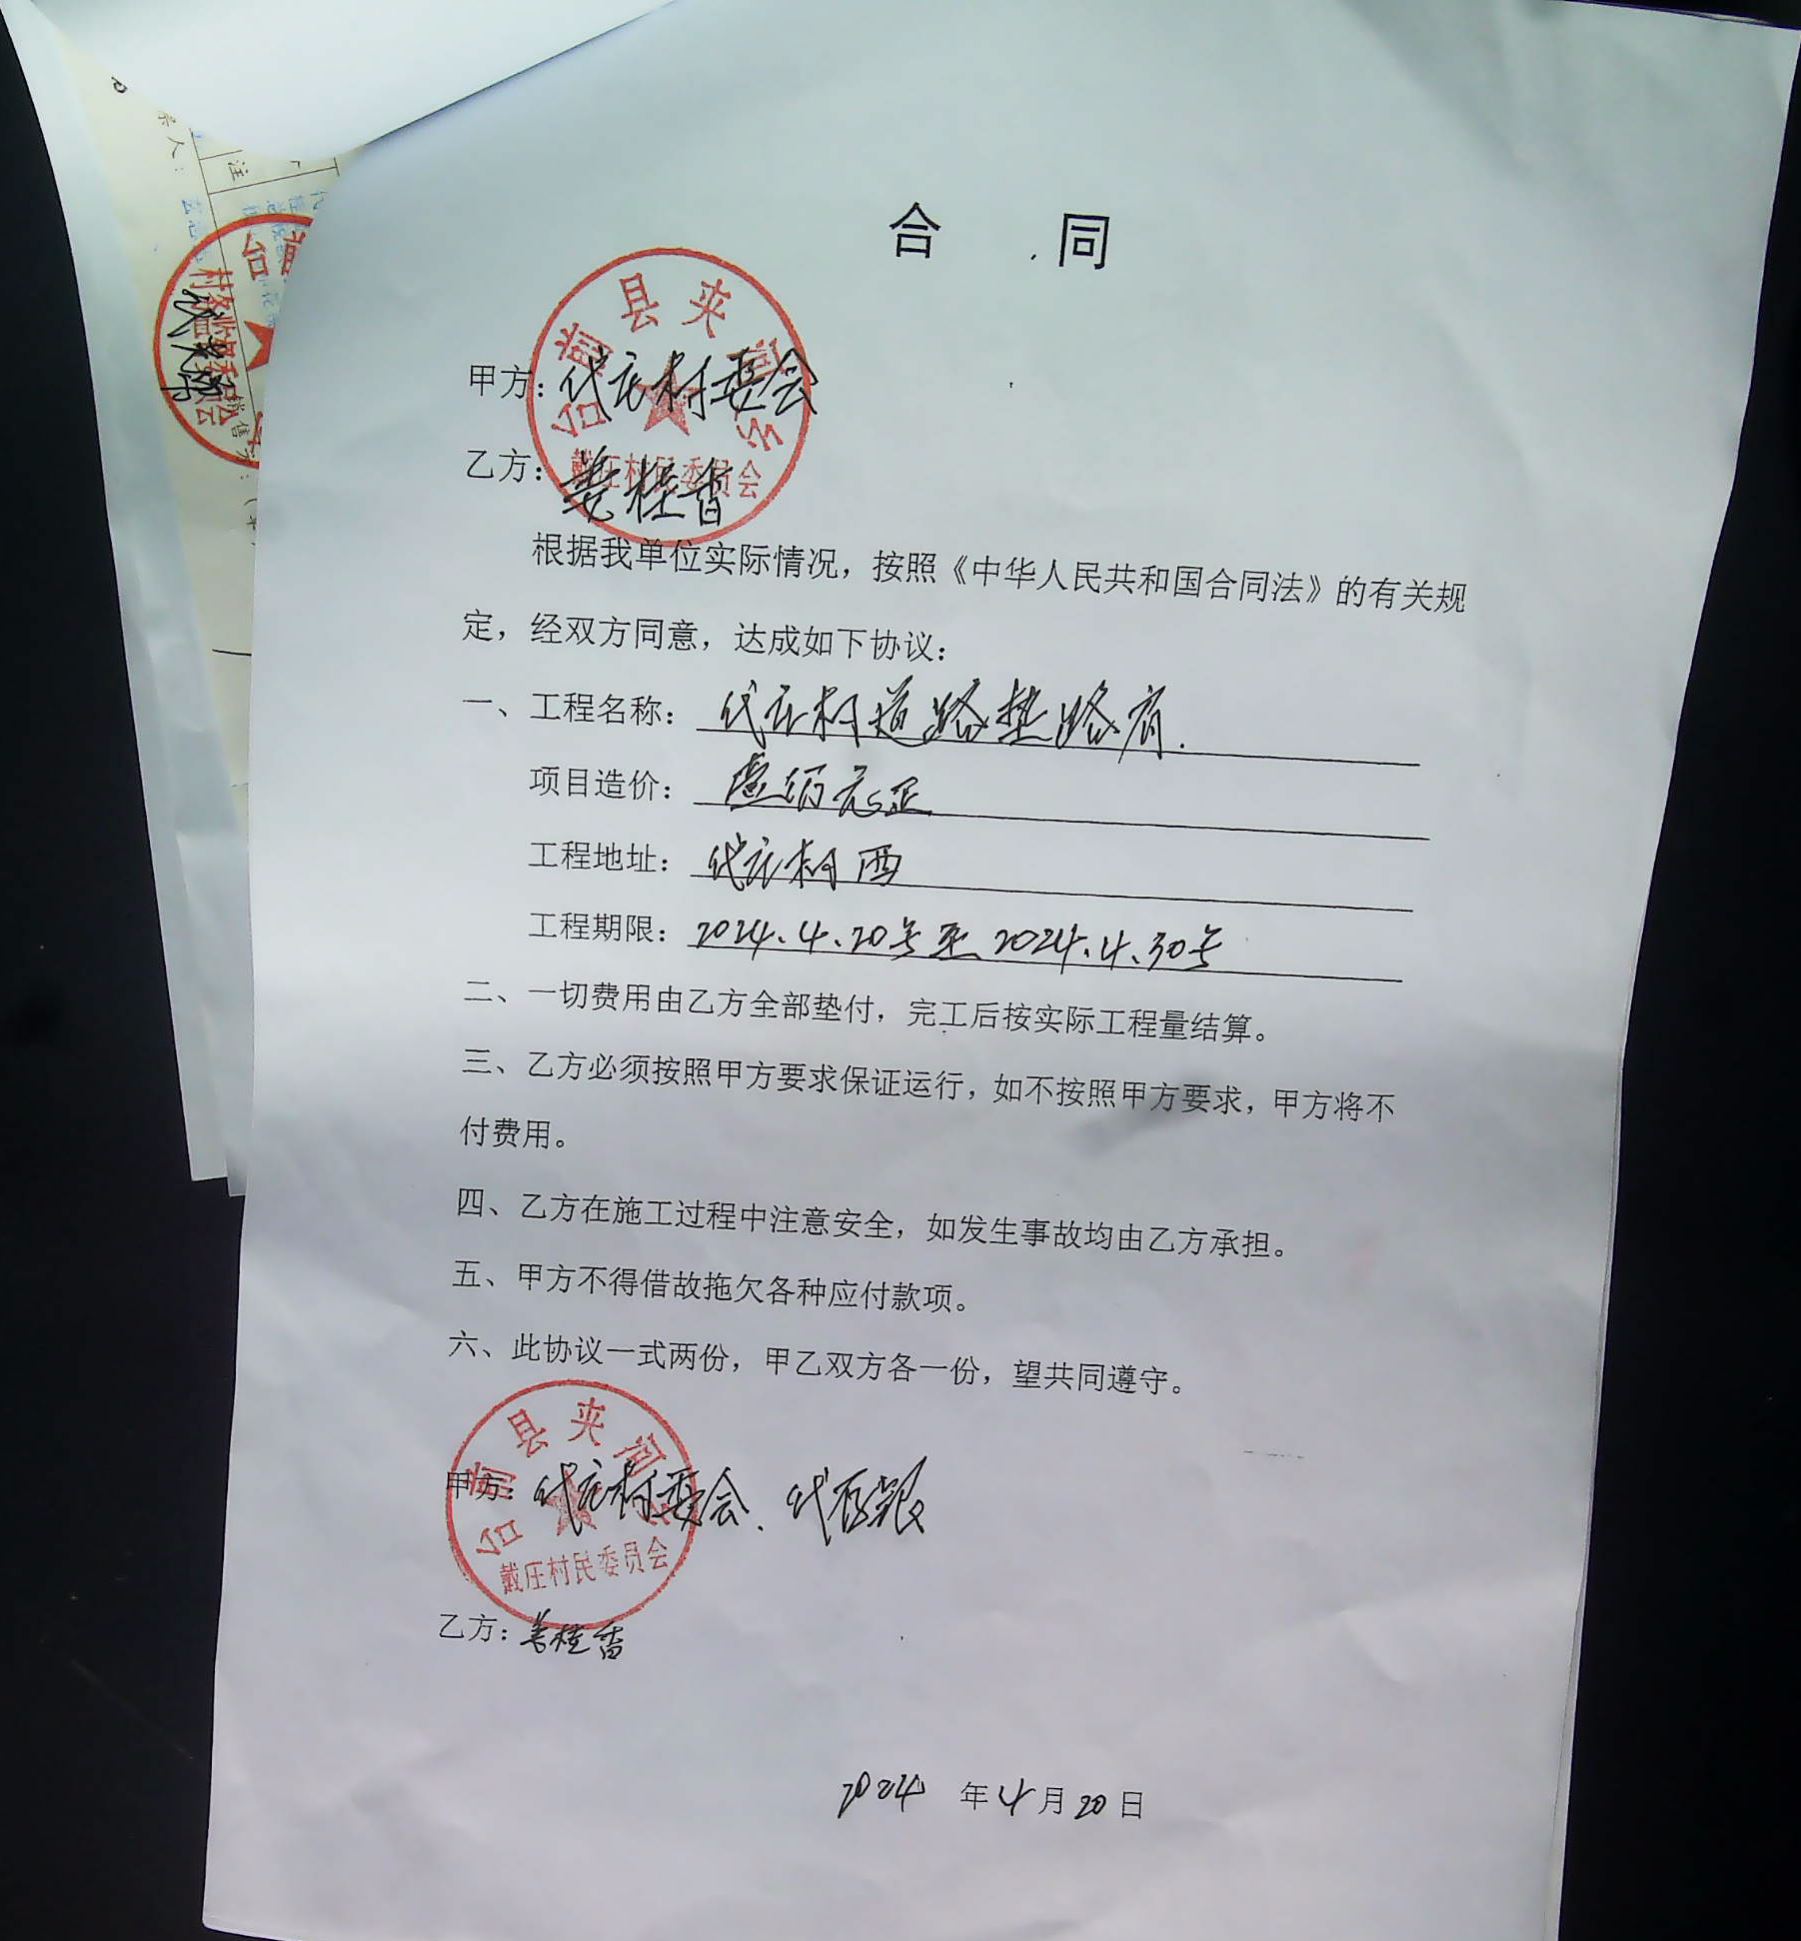 合 同
甲方：代庄村委会
乙方：姜桂香
台前县夹河乡
戴庄村民委员会
根据我单位实际情况，按照《中华人民共和国合同法》的有关规
定，经双方同意，达成如下协议：
一、工程名称：代庄村道路垫路肩.
项目造价：壹佰元正
工程地址：代庄村西
工程期限：2024.4.20号至2024.4.30号
二、一切费用由乙方全部垫付，完工后按实际工程量结算。
三、乙方必须按照甲方要求保证运行，如不按照甲方要求，甲方将不
付费用。
四、乙方在施工过程中注意安全，如发生事故均由乙方承担。
五、甲方不得借故拖欠各种应付款项。
六、此协议一式两份，甲乙双方各一份，望共同遵守。
甲方：代庄村委会、代
台前县夹河乡
戴庄村民委员会
乙方：姜桂香
2024 年 4 月 20 日
注
台前
村务监督委员会
销售